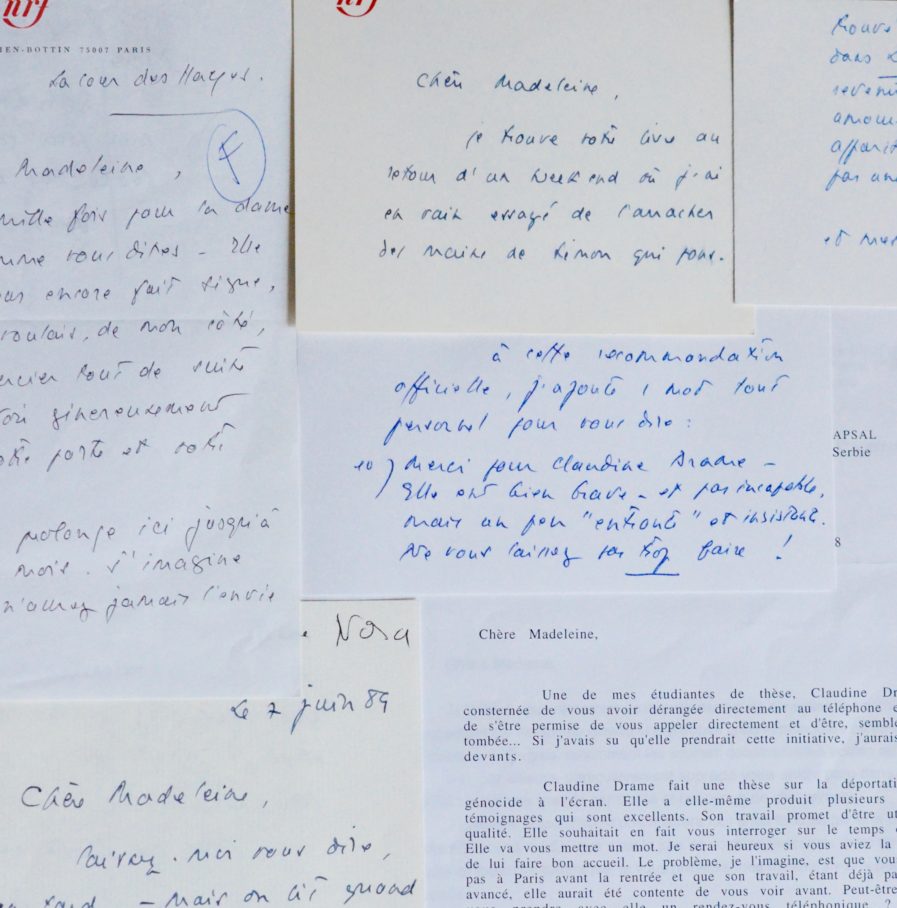 nrf
IEN-BOTTIN 75007 PARIS
La cour des
Madeleine,
F
mille fois pour la dame
mme vous dites - Elle
pas encore fait signe,
voulais, de mon côté,
ercier tout de suite
généreusement
porte et votre
prolonge ici jusqu'à
mois. S'imagine
n'aurez jamais l'envie
nrf
Chère Madeleine,
je trouve votre livre au
retour d'un week end où j'ai
en vain essayé de l'arracher
des mains de Simon qui
trouve
dans
reveni
amour
apparit
par un
et
à cette recommandation
officielle, j'ajoute 1 mot tout
personnel pour vous dire :
10) Merci pour Claudine Drame -
Elle est bien brave - et pas incapable,
mais un peu "effrontée" et insistante.
Ne vous laissez pas trop faire !
APSAL
Serbie
8
Chère Madeleine,
Une de mes étudiantes de thèse, Claudine Dr
consternée de vous avoir dérangée directement au téléphone e
de s'être permise de vous appeler directement et d'être, semble
tombée... Si j'avais su qu'elle prendrait cette initiative, j'aurais
devants.
Claudine Drame fait une thèse sur la déportati
génocide à l'écran. Elle a elle-même produit plusieurs
témoignages qui sont excellents. Son travail promet d'être ut
qualité. Elle souhaitait en fait vous interroger sur le temps
Elle va vous mettre un mot. Je serai heureux si vous aviez la
de lui faire bon accueil. Le problème, je l'imagine, est que vou
pas à Paris avant la rentrée et que son travail, étant déjà pa
avancé, elle aurait été contente de vous voir avant. Peut-être
vous prendre avec elle un rendez-vous téléphonique ?
Nora
Le 7 juin 89
Chère Madeleine,
Laissez-moi vous dire,
tard - mais on lit quand